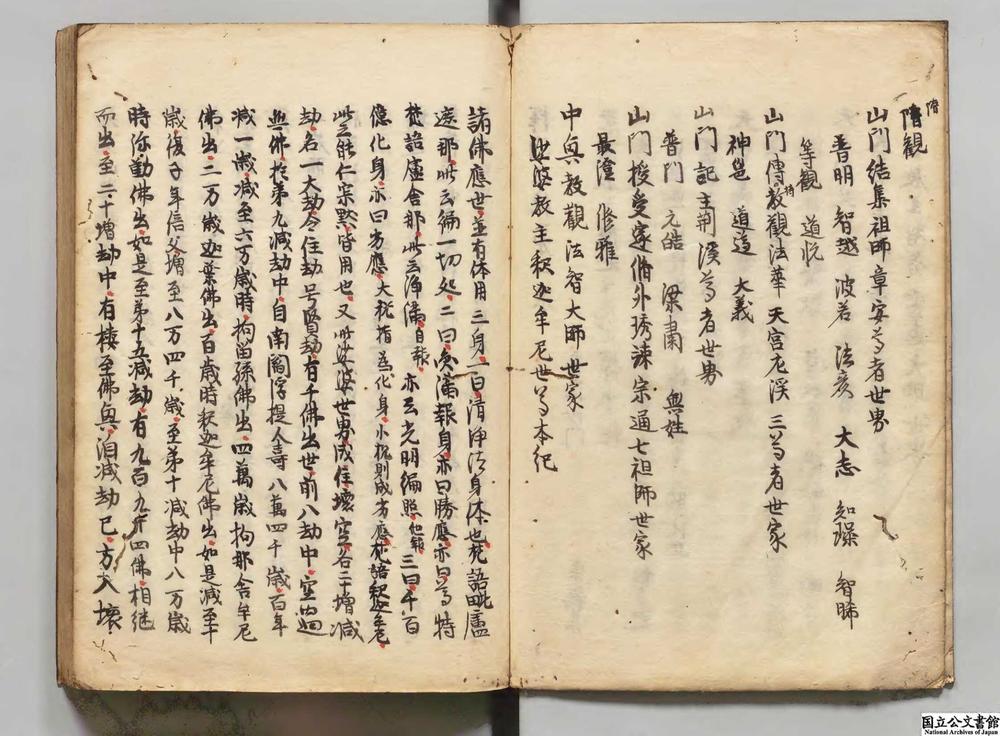 隋觀
隋
山門結集祖師章安尊者世男
普明 智越 波若 法彦 大志 知璪 智晞
等觀 道悅
山門傳持教觀法華天宮左溪三尊者世家
神邕 道遵 大義
山門記主荊溪尊者世男
普門 元皓 梁肅 與姓
山門授受邃脩外琇竦宗通七祖師世家
最澄 修雅
中興教觀法智大師世家
娑婆教主釈迦牟尼世尊本紀
諸佛應世並有体用三身一曰清浄法身本也梵語毗盧
遮那此云徧一切処二曰圓滿報身亦曰勝應亦曰尊特
梵語盧舍那此云浄滿自報亦云光明徧照他報三曰千百
億化身亦曰劣應大機指為化身小機則成劣應梵語釈迦牟尼
此云能仁寂默皆用也又此娑婆世男成住壞空各二十增減
劫名一大劫今住劫号賢劫有千佛出世前八劫中空過
無佛於第九減劫中自南閻浮提人壽八萬四千歲百年
減一歲減至六万歲時拘留孫佛出四萬歲拘那含牟尼
佛出二万歲迦葉佛出百歲時釈迦牟尼佛出如是減至十
歲復子年倍父增至八万四千歲至第十減劫中八万歲
時弥勒佛出如是至第十五減劫有九百九十四佛相継
而出至二十增劫中有樓至佛興洎減劫已方入壞
国立公文書館
National Archives of Japan